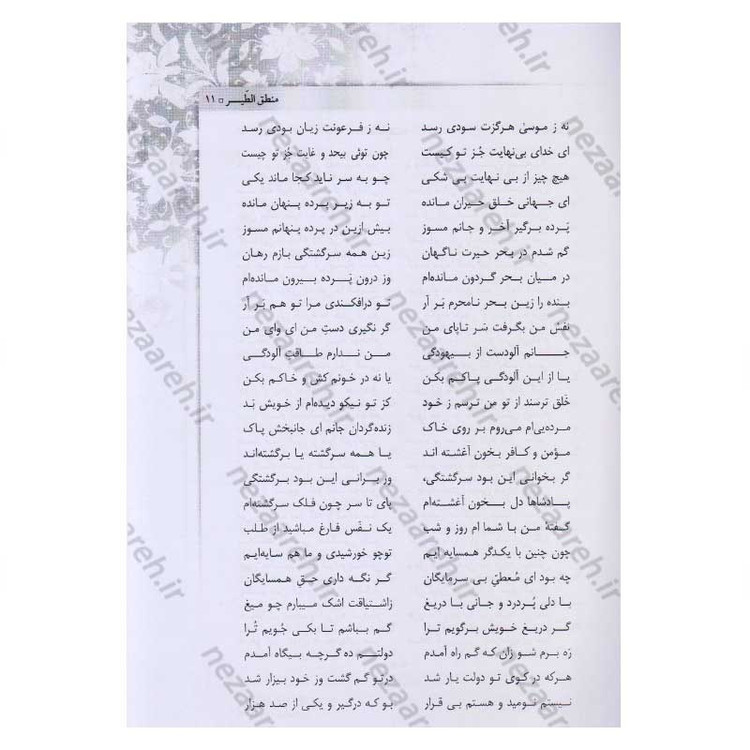 منطق الطّیـــر □ ۱۱
نه ز موسیٰ هرگزت سودی رسد نـه ز فـرعونت زیان بودی رَسد
ای خدای بی‌نهایت جُز تو کیست چون توئی بیحد و غایت جُز تو چیست
هیچ چیز از بی نهایت بی شکی چـو به سر ناید کـجا ماند یکی
ای جـهانی خـلق حیـران مـانده تو بـه زیـر پرده پنهان مانده
پَـرده برگیر آخَـر و جانم مسوز بیش ازین در پرده پنهانم مسوز
گم شدم در بـحر حیرت ناگـهان زین همه سرگشتگی بازم رهان
در مـیان بحر گردون مـانده‌ام وز درون پَـرده بیـرون مـانده‌ام
بـنده را زین بـحر نامحرم بَـر آر تو درافکندی مرا تو هـم بَر آر
نفش من بگرفت سَر تاپای من گر نگیری دستِ من ای وای من
جـانم آلودست از بـیهودگی مـن نـدارم طـاقتِ آلودگی
یـا از این آلودگـی پـاکـم بـکن یا نه در خونم کش و خاکم بکن
خَلق ترسند از تو من ترسم ز خود کز تو نیکو دیده‌ام از خویش بَد
مرده‌یی‌ام می‌روم بـر روی خاک زنده‌گردان جانم ای جانبخش پاک
مؤمن و کـافر بخون آغشته اند یـا همه سرگشته یا برگشته‌اند
گر بخوانی این بود سرگشتگی، ور بـرانی این بود برگشتگی
پـادشاها دل بـخون آغشته‌ام پای تا سر چون فلک سرگشته‌ام
گفتهٔ من با شما ام روز و شب یک نفَس فارغ مباشید از طلب
چون چنین با یکدگر همسایه ایم توچو خورشیدی و ما هم سایه‌ایم
چه بود ای مُعطیّ بی سرمایگان گـر نگه داری حقِ همسایگان
بـا دلی پُـردرد و جانی بـا دریغ زاشتیاقت اشک میبارم چو میغ
گـر دریـغ خویش برگویم ترا گـم بباشم تـا بکی جُویم تُرا
رَه برم شو زان که گم راه آمدم دولتـم ده گرچـه بیگاه آمدم
هرکه در کوی تو دولت یار شد درتو گم گشت وز خود بیزار شد
نیستم نومید و هستم بی قرار بو که درگیر و یکی از صد هزار
nezaareh.ir
nezaareh.ir
nezaareh.ir
nezaareh.ir
nezaareh.ir
nezaareh.ir
nezaareh.ir
nezaareh.ir
nezaareh.ir
nezaareh.ir
nezaareh.ir